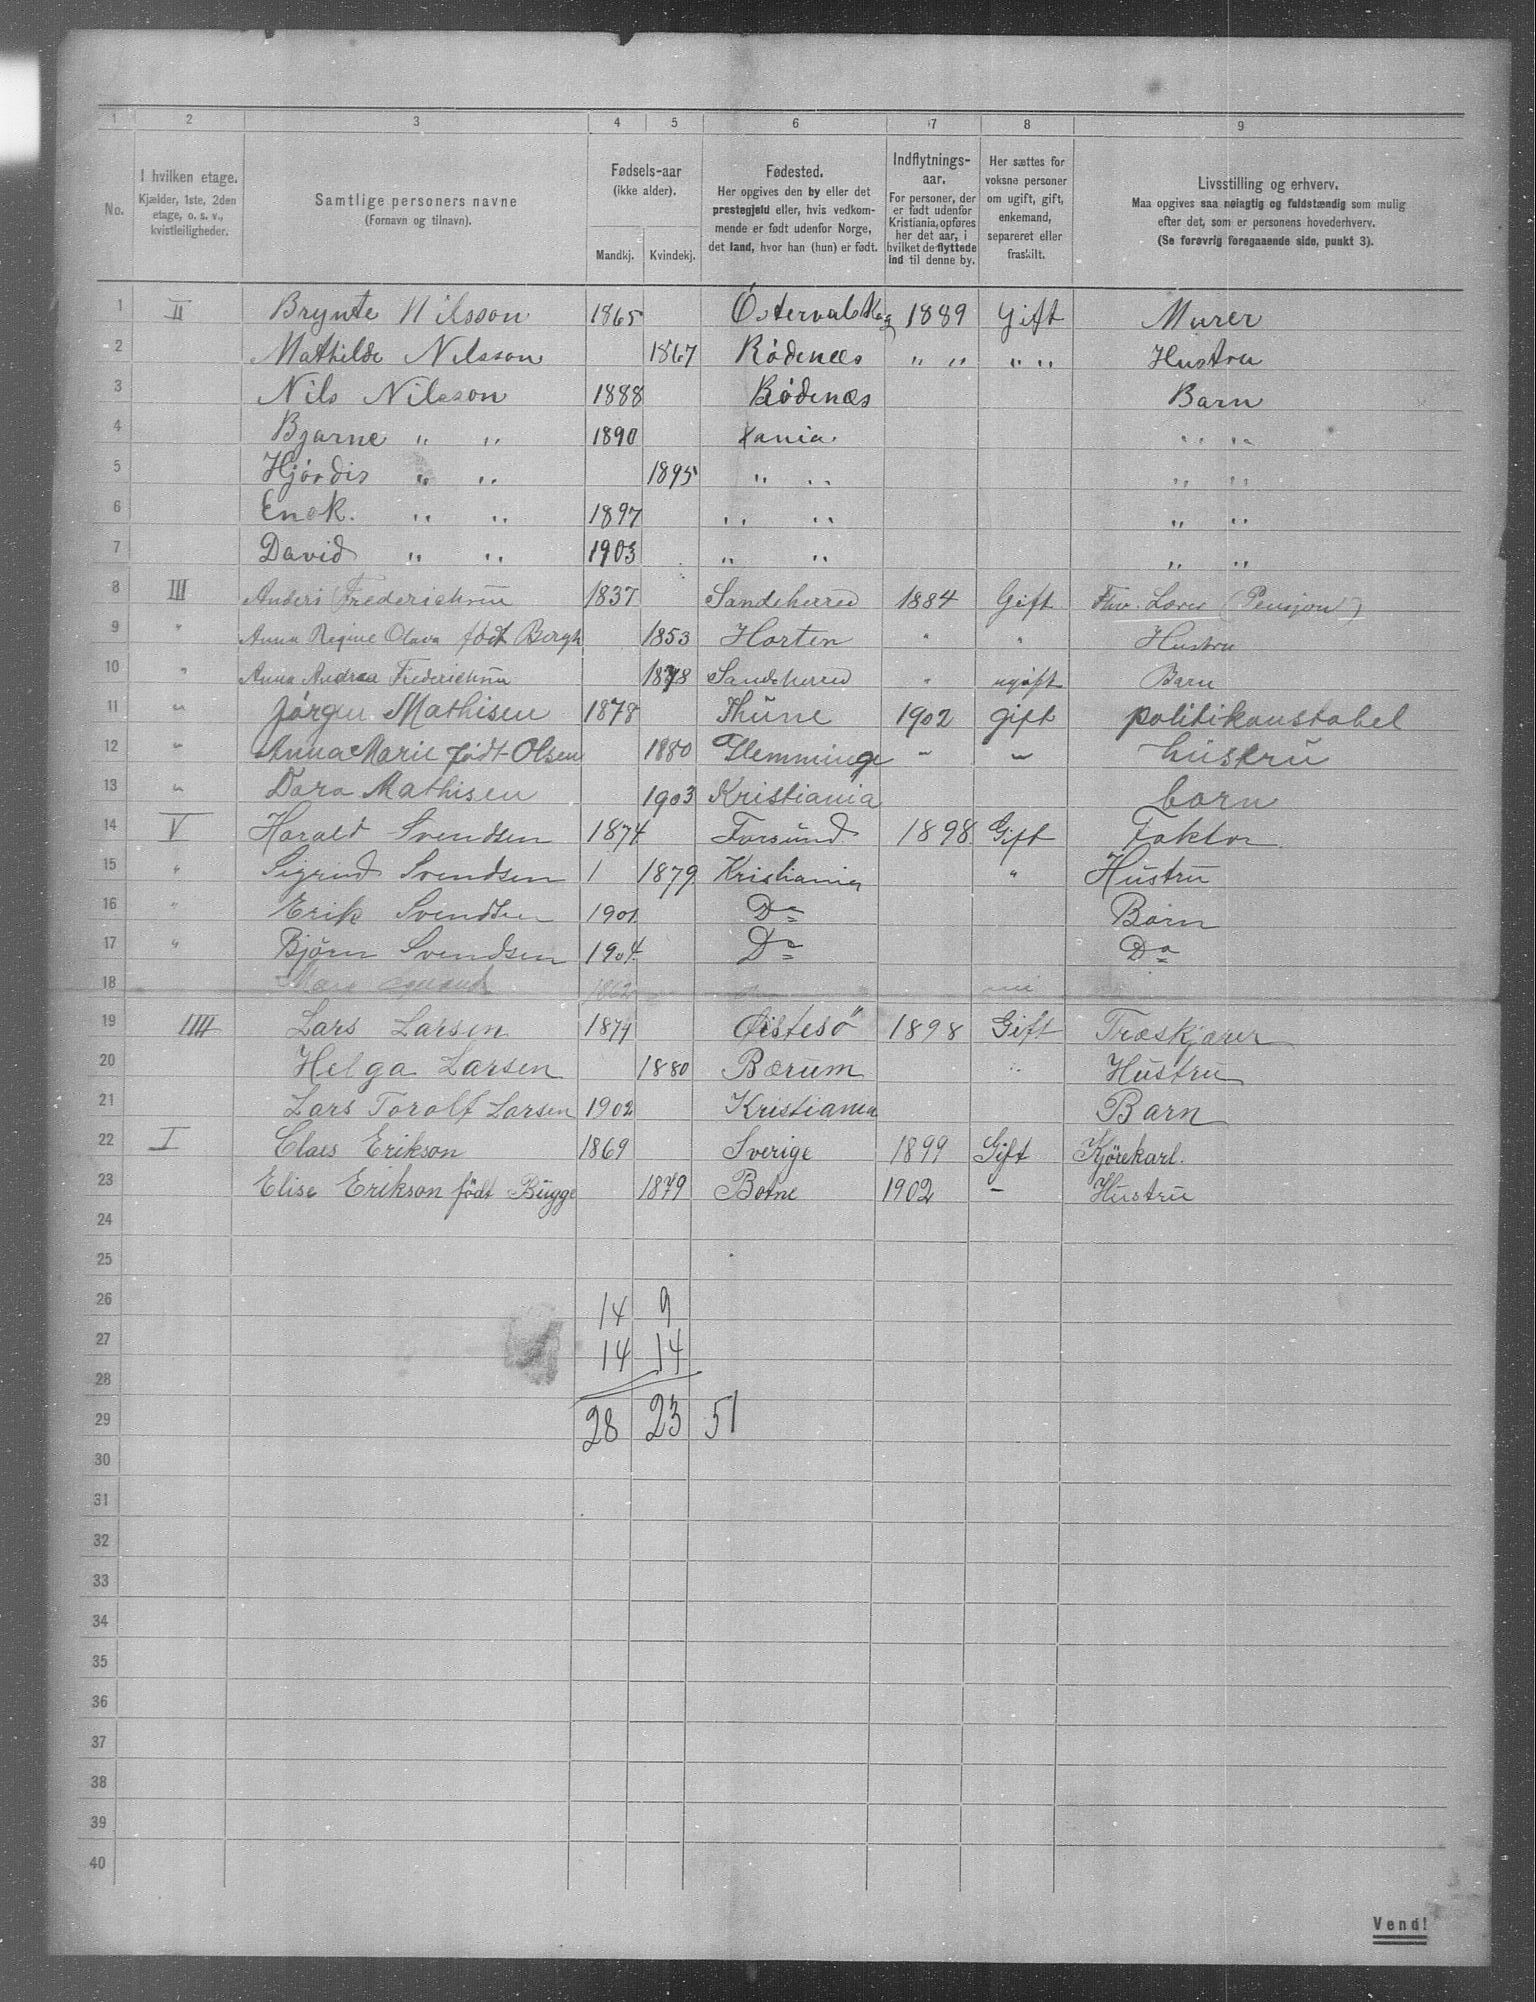 1 2 3 4 5 6 7 8 9
No.
I hvilken etage.
Kjælder, 1ste, 2den
etage, o. s. v.,
kvistleiligheder.
Samtlige personers navne
(Fornavn og tilnavn).
Fødsels-aar
(ikke alder).
Mandkj. Kvindekj.
Fødested.
Her opgives den by eller det
prestegjeld eller, hvis vedkom-
mende er født udenfor Norge,
det land, hvor han (hun) er født.
Indflytnings-
aar.
For personer, der
er født udenfor
Kristiania, opføres
her det aar, i
hvilket de flyttede
ind til denne by.
Her sættes for
voksne personer
om ugift, gift,
enkemand,
separeret eller
fraskilt.
Livsstilling og erhverv.
Maa opgives saa nøiagtig og fuldstændig som mulig
efter det, som er personens hovederhverv.
(Se forøvrig foregaaende side, punkt 3).
1 II Brynte Nilsson 1865 1889 Gift Murer
2 Mathilde Nilsson 1867 Rødenæs " " " " Hustru
3 Nils Nilsson 1888 Rødenæs Barn
4 Bjarne " " 1890 Xania " "
5 Hjørdis " " 1895 " " " "
6 Enok. " " 1897 " " " "
7 David " " 1903 " " " "
8 III Anders Frederichsen 1837 Sandeherred 1884 Gift (Pensjon)
9 " Anna Regine Olava født Bergh 1853 Horten " " Hustru
10 " Anna Andrea Frederichsen 1878 Sandeherred " ugift Barn
11 " Jørgen Mathisen 1878 Thüne 1902 gift politikonstabel
12 " Anna Marie født Olsen 1880 Glemminge " " hüstrü
13 " Dora Mathisen 1903 Kristiania barn
14 V Harald Svendsen 1874 Farsund 1898 Gift Faktor
15 " Sigrid Svendsen 1 1879 Kristiania " Hüstrü
16 " Erik Svendsen 1901 Do Barn
17 " Bjørn Svendsen 1904 Do Do
18 1862
19 IIII Lars Larsen 1874 Øistesø 1898 Gift Træskjærer
20 Helga Larsen 1880 Bærum " Hüstrü
21 Lars Toralf Larsen 1902 Kristiania Barn
22 I Claes Erikson 1869 Sverige 1899 Gift Kjørekarl.
23 Elise Erikson født Bügge 1879 Botne 1902 – Hüstrü
24
25
26 14 9
27 14 14
28
29 28 23 51
30
31
32
33
34
35
36
37
38
39
40
Vend!